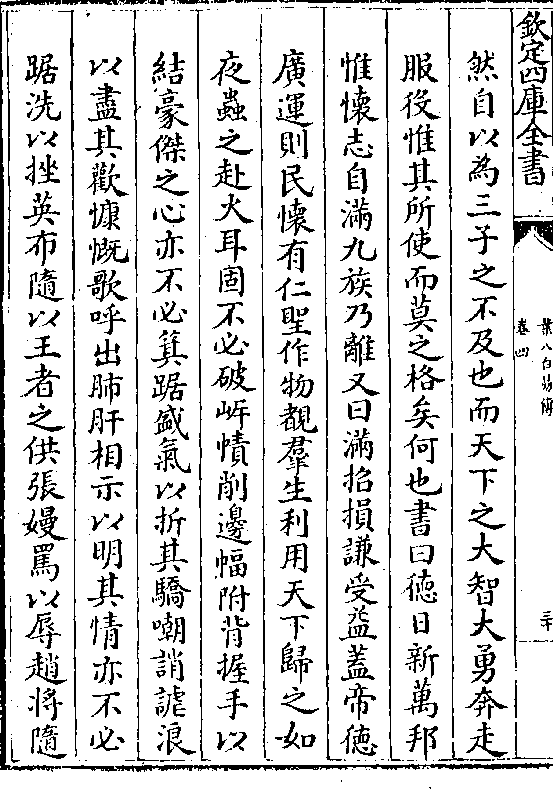 欽定四庫全書
葉八白易傳
卷四
三十
然自以為三子之不及也而天下之大智大勇奔走
服役惟其所使而莫之格矣何也書曰德日新萬邦
惟懷志自滿九族乃離又曰滿招損謙受益蓋帝德
廣運則民懷有仁聖作物覩羣生利用天下歸之如
夜蟲之赴火耳固不必破岸幘削邊幅附背握手以
結豪傑之心亦不必箕踞盛氣以折其驕嘲誚謔浪
以盡其歡慷慨歌呼出肺肝相示以明其情亦不必
踞洗以挫英布隨以王者之供張嫚罵以辱趙將隨